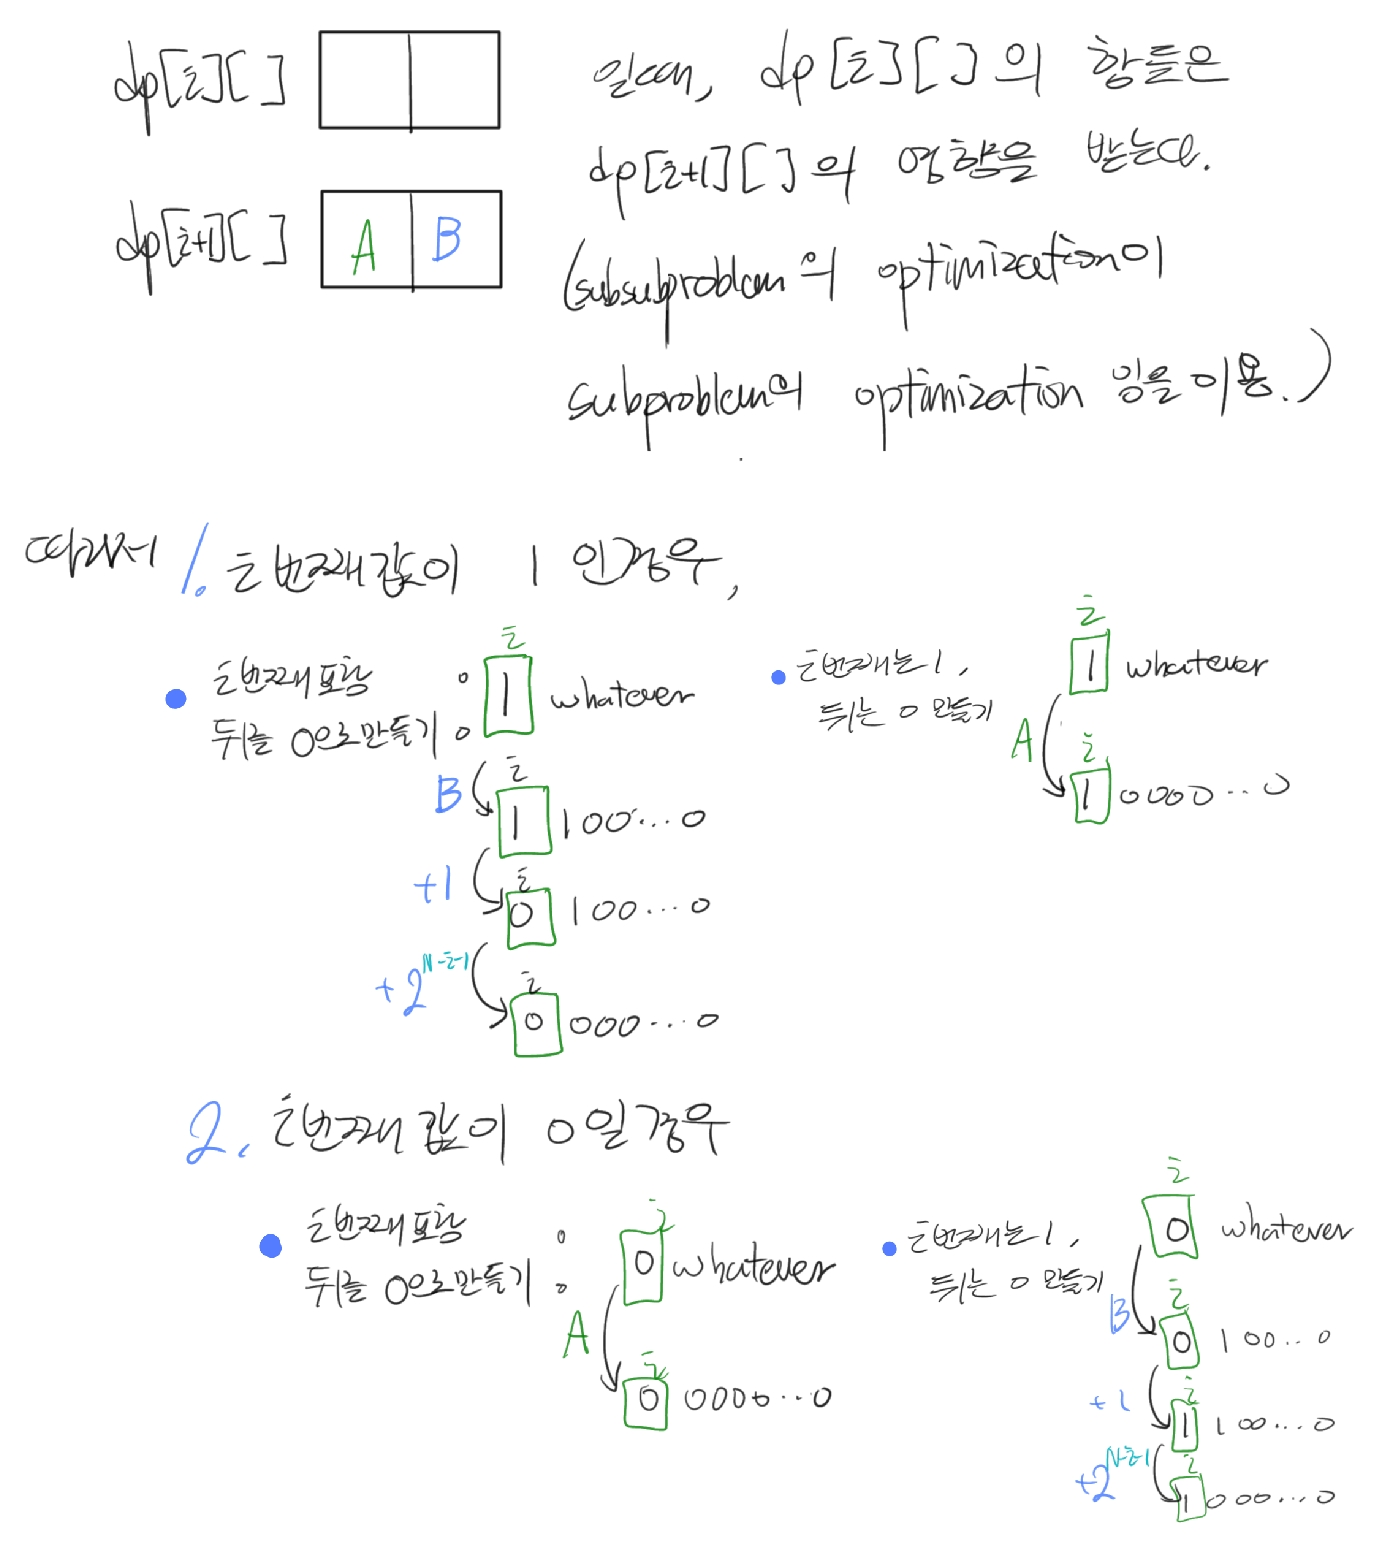 dp[i][ ]
일단, dp[i][ ]의 항들은
dp[i+1][ ]의 영향을 받는다.
dp[i+1][ ] A B
(subsubproblem의 optimization이
subproblem의 optimization 임을 이용.)
따라서 1. i번째 값이 1인 경우,
i번째 포함
뒤를 0으로 만들기 :
i
1 whatever
B
i
1 100...0
+1
i
0 100...0
+2^N-i-1
i
0 000...0
i번째는 1,
뒤는 0 만들기
i
1 whatever
A
i
1 0000...0
2. i번째 값이 0일 경우
i번째 포함
뒤를 0으로 만들기 :
i
0 whatever
A
i
0 0000...0
i번째는 1,
뒤는 0 만들기
i
0 whatever
B
i
0 100...0
+1
i
1 100...0
+2^N-i-1
i
1 000...0